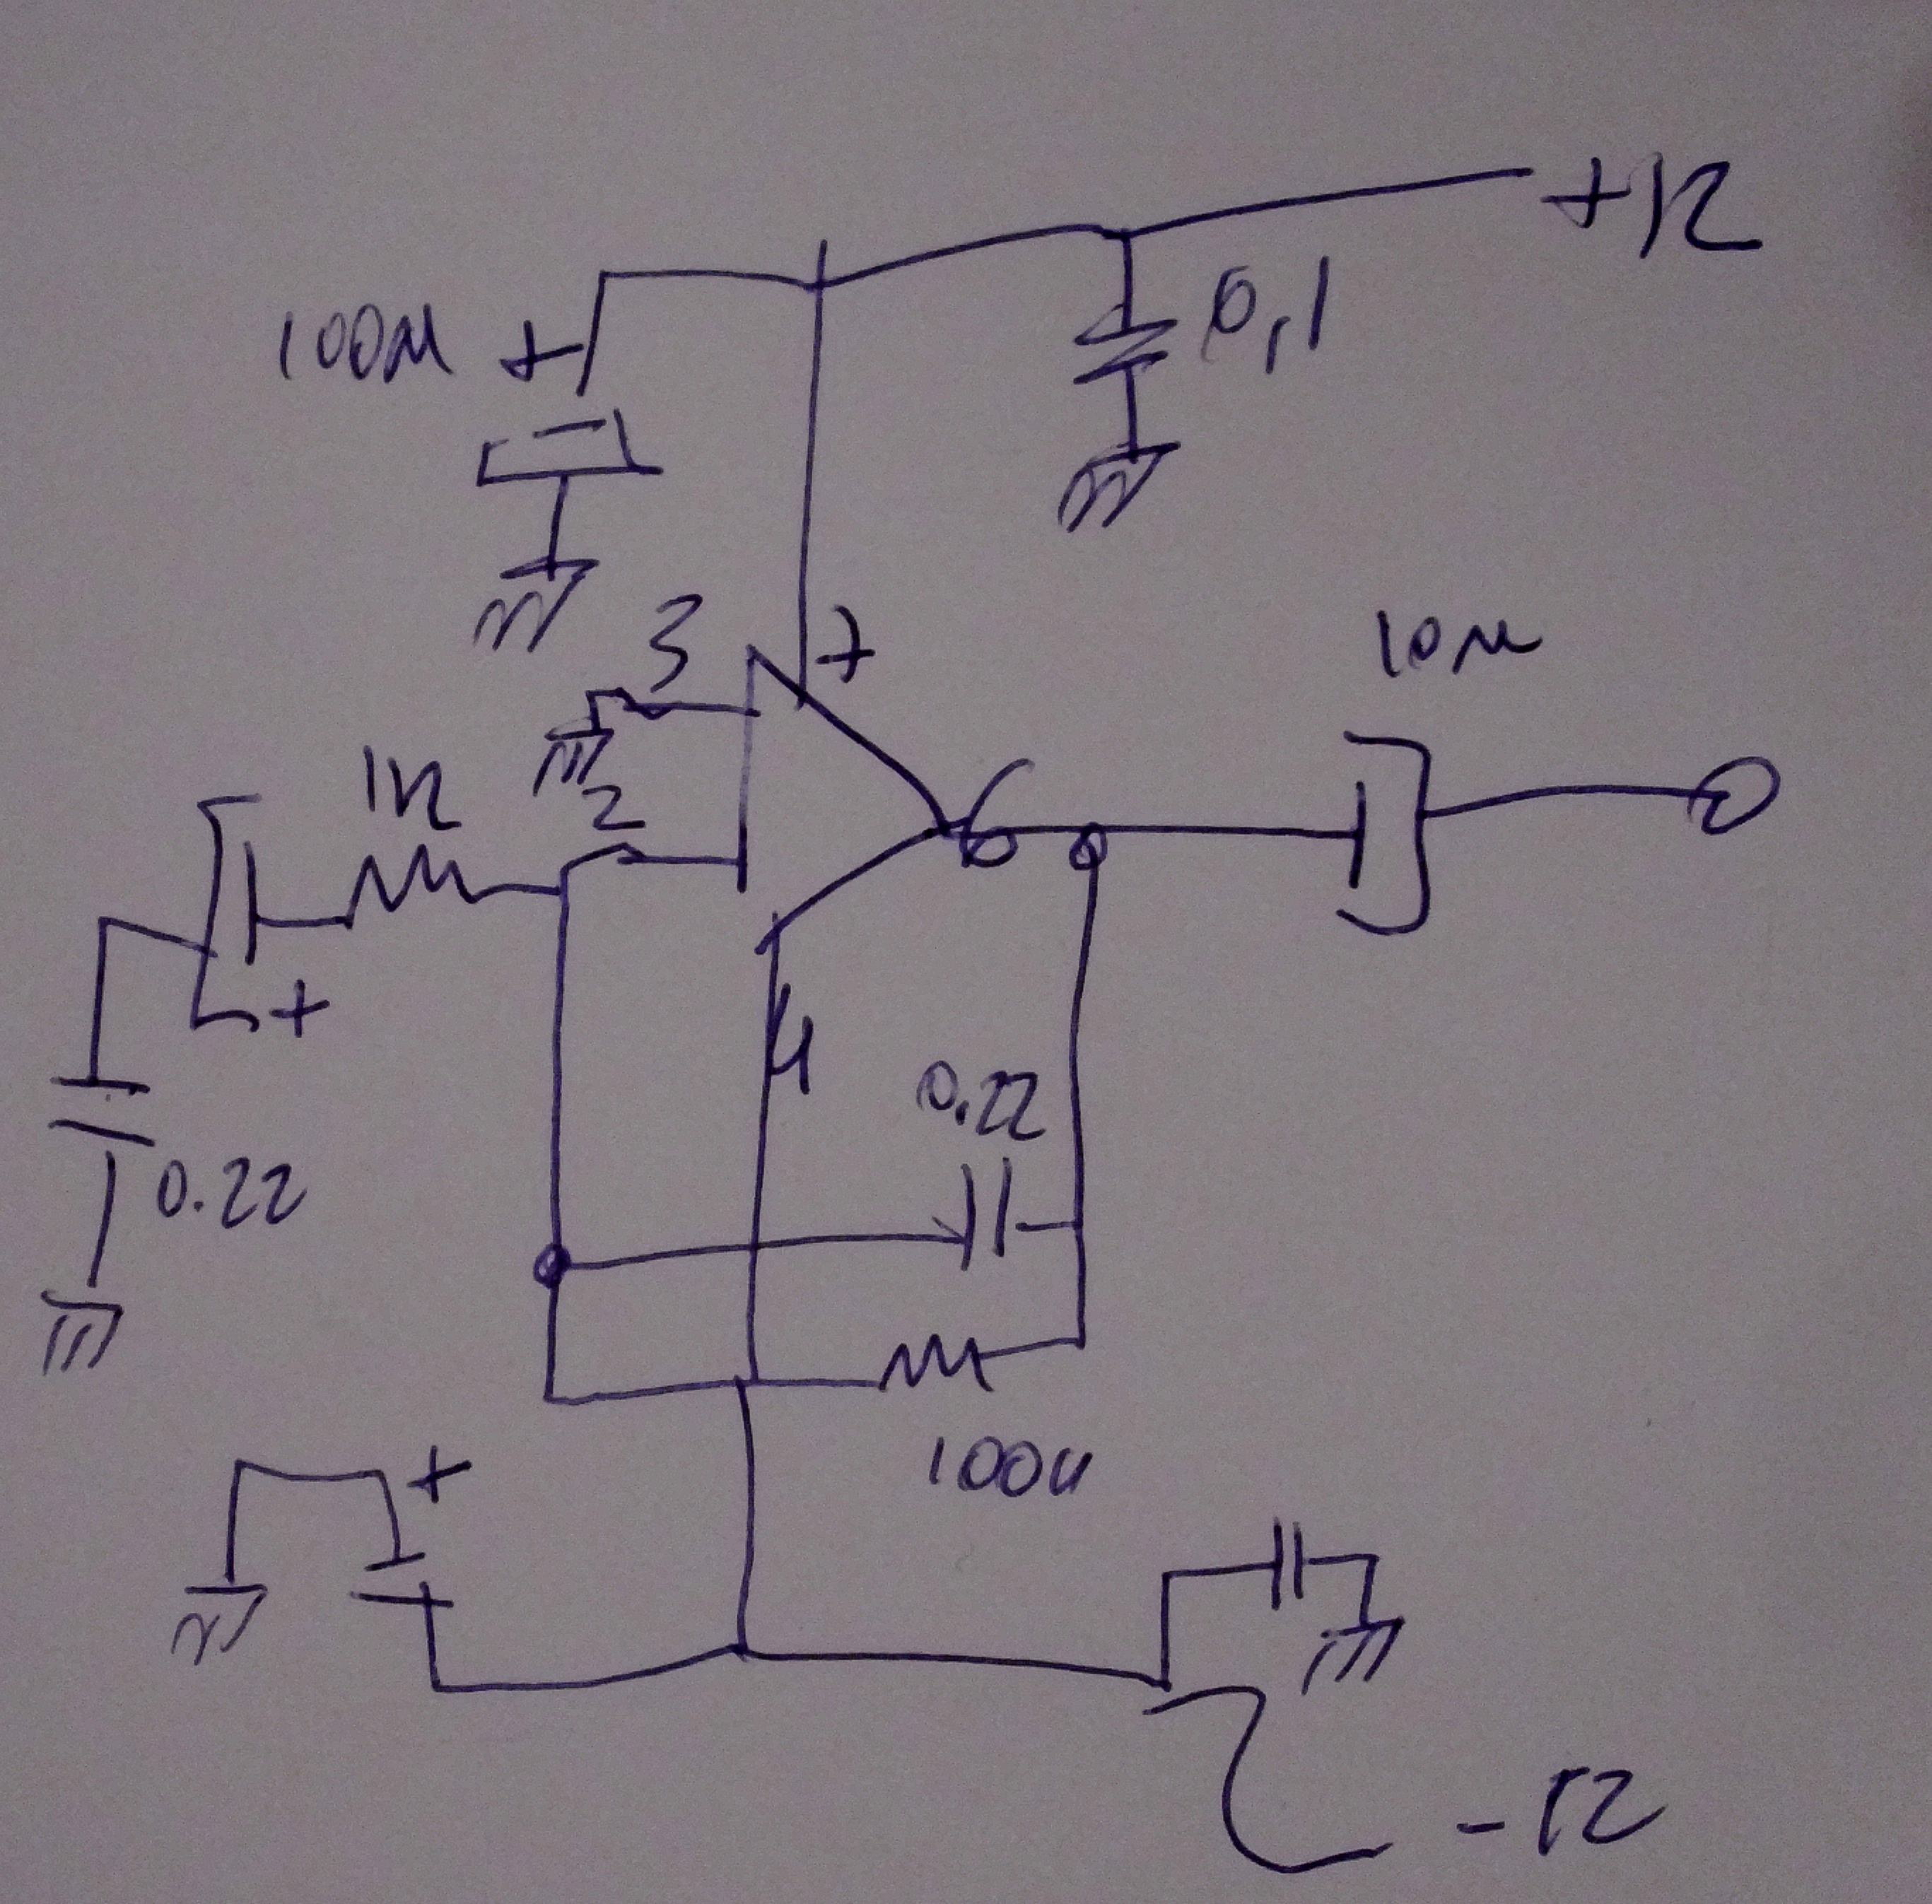 +12
100μ +
0,1
3
7
10μ
1K
2
6
+
4
0.22
0.22
+
100u
-12